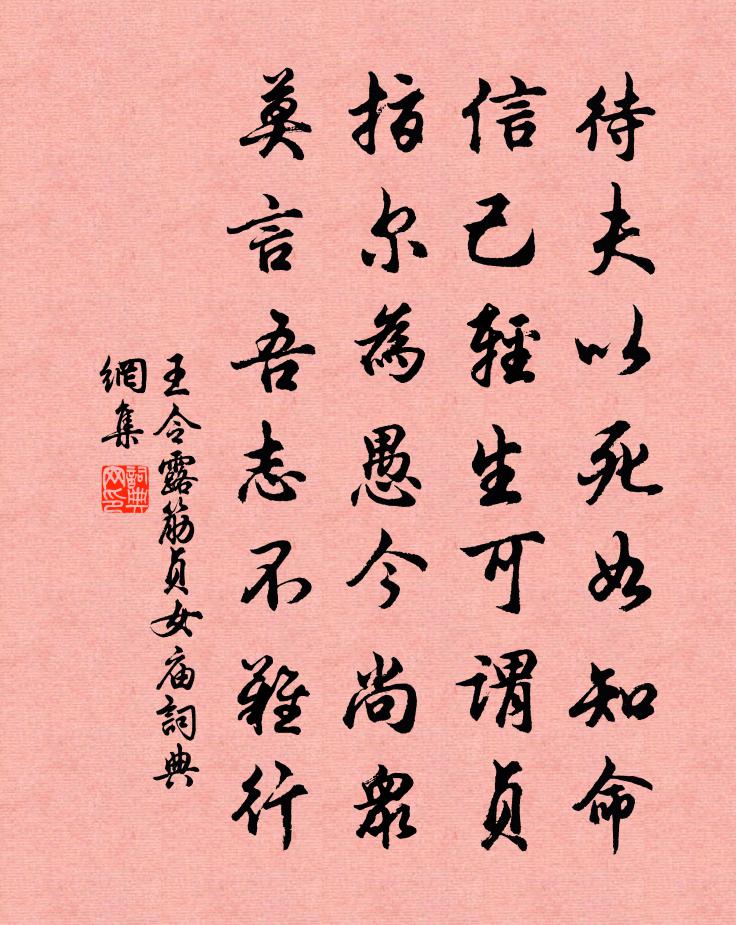 待夫以死如知命
信己輕生可謂貞
指尔為愚今尚眾
莫言吾志不難行
王令露筋貞女庙詞典
網集
詞典
网印